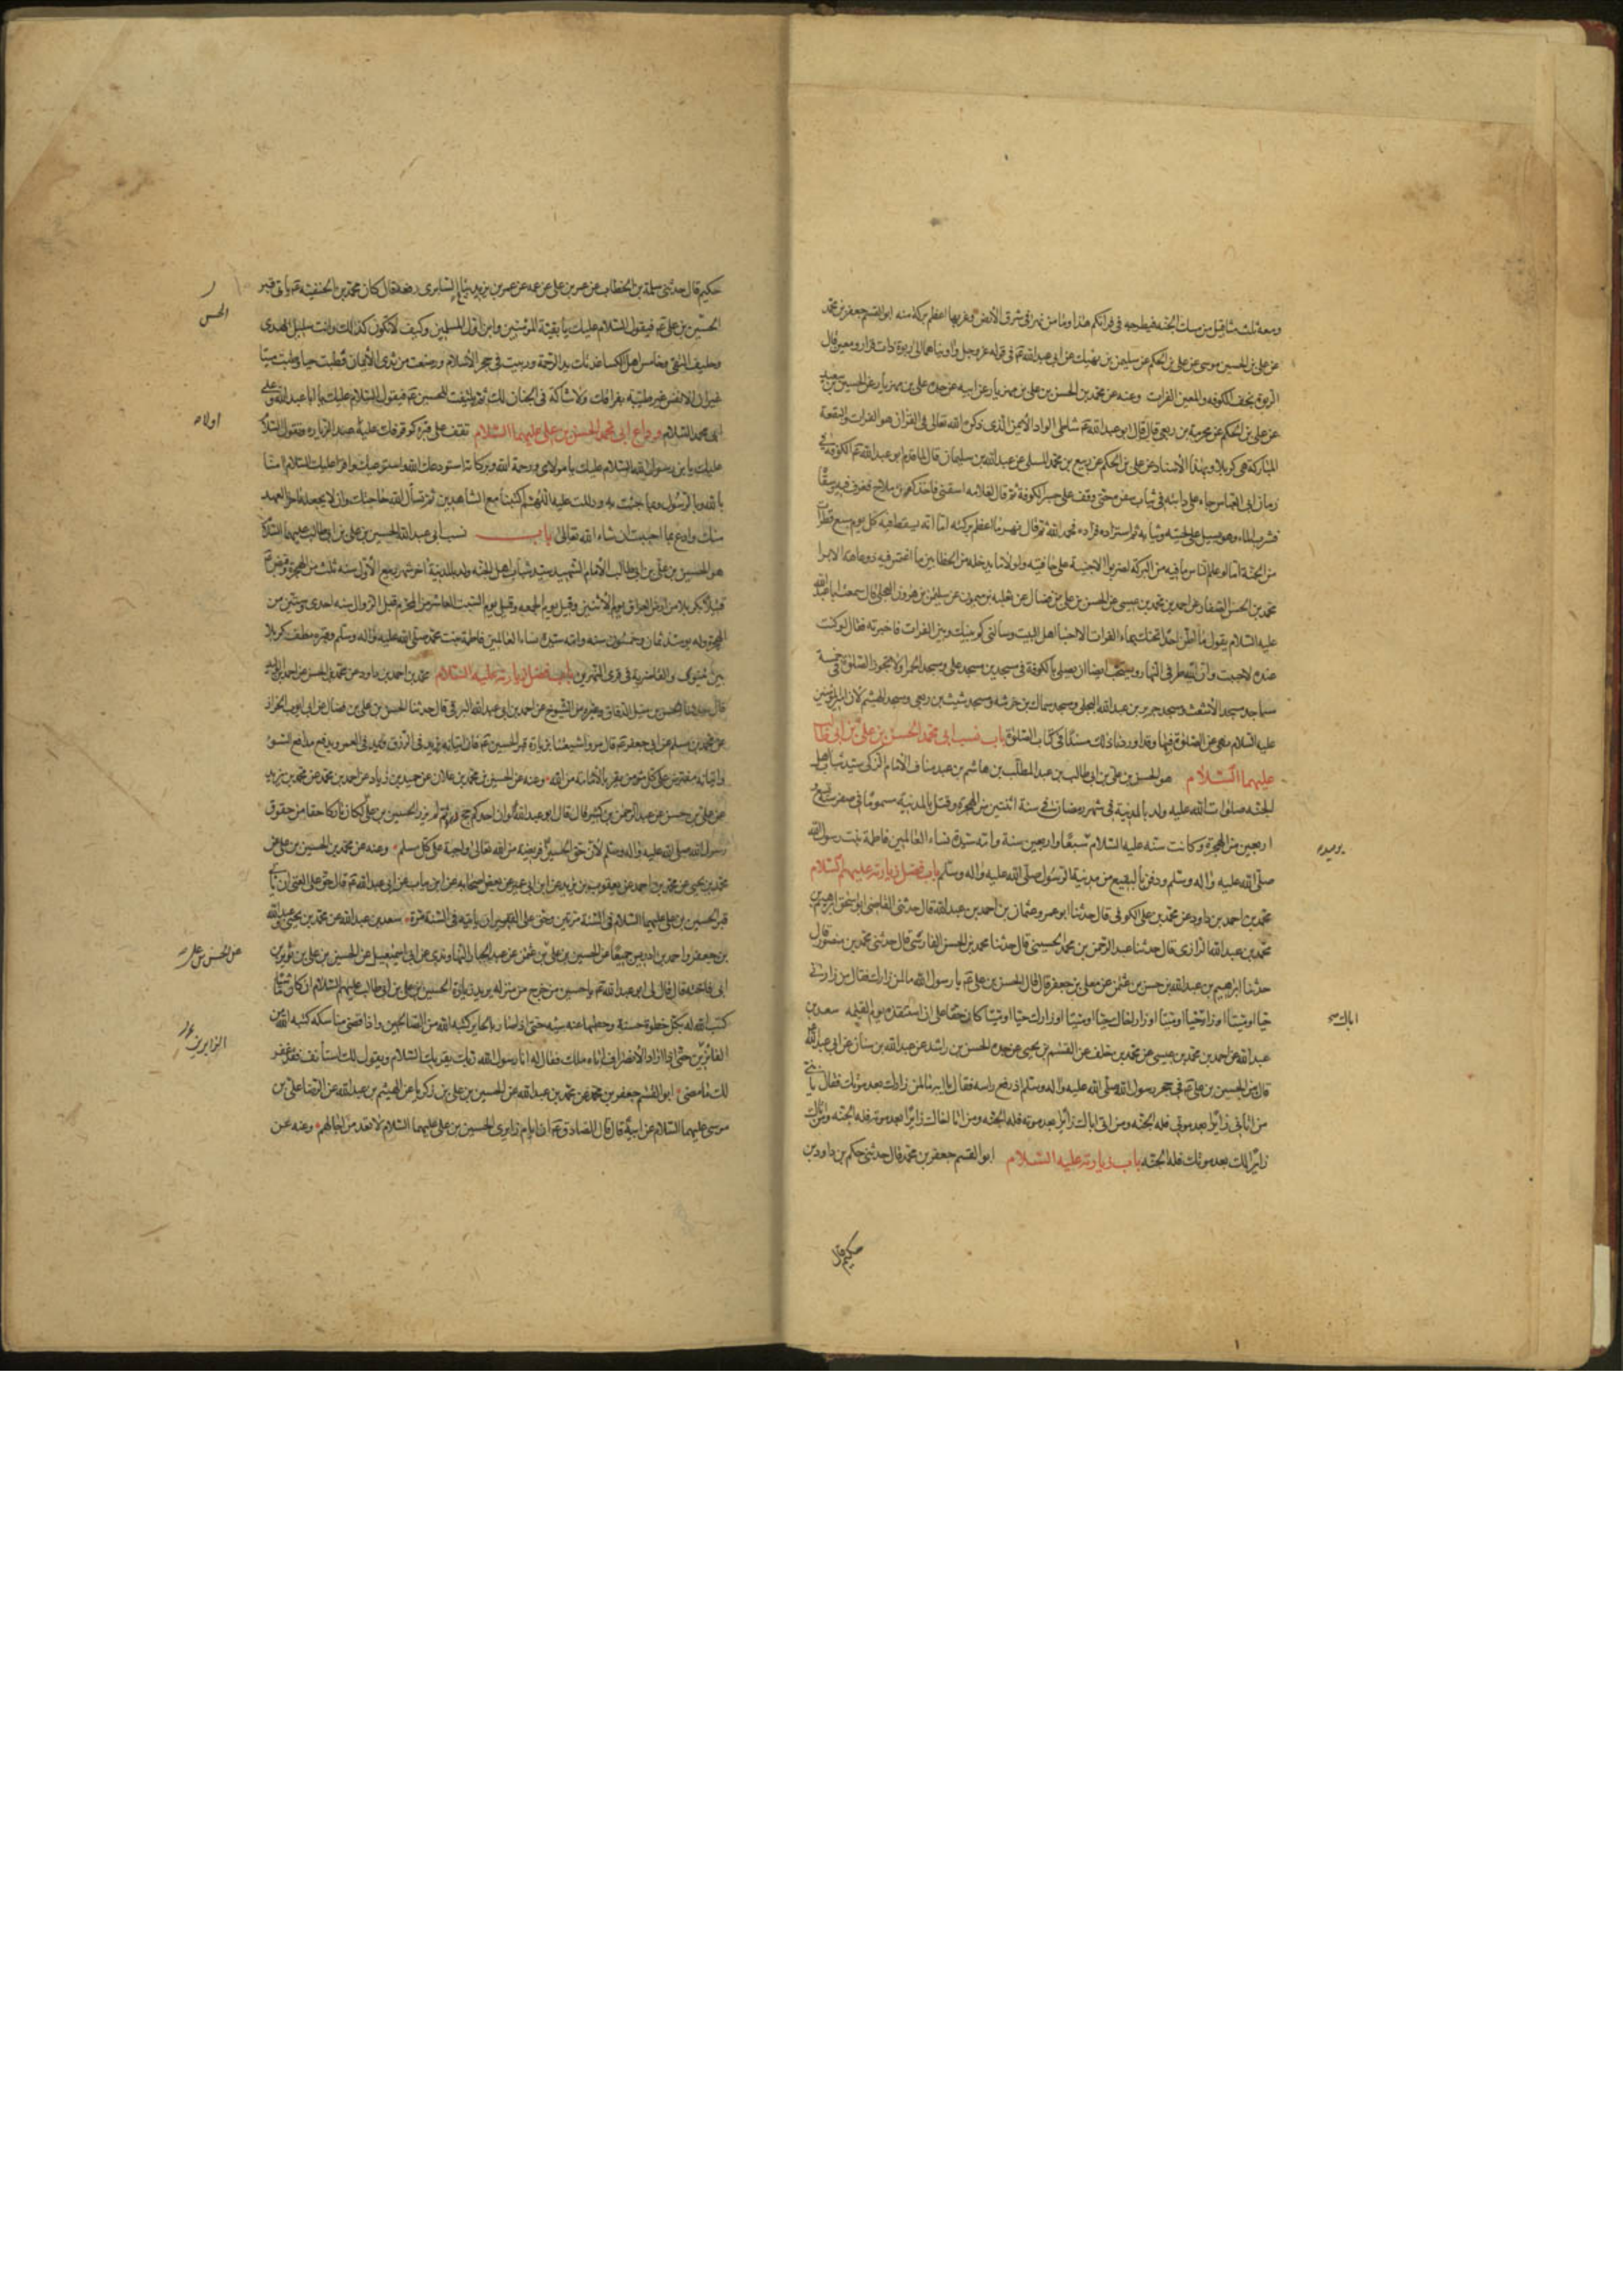 ومعه ثلث مثاقيل من مسك الجنة فيطرحه في فراتكم هذا وما من نهر في شرق الأرض وغربها اعظم بركة منه ابو القسم جعفر بن محمد
عن علي بن الحسين بن موسى عن علي بن الحكم عن سليمن بن نهيك عن ابي عبد الله ع في قوله عز وجل واويناهما الى ربوة ذات قرار ومعين قال
الربوة نجف الكوفه والمعين الفرات وعنه عن محمد بن الحسن بن علي بن مهزيار عن ابيه عن جده علي بن مهزيار عن الحسين بن سعيد
عن علي بن الحكم عن مخرمة بن ربعي قال قال ابو عبد الله ع شاطئ الواد الأيمن الذي ذكره الله تعالى في القرآن هو الفرات والبقعة
المباركة هي كربلا وبهذا الأسناد عن علي بن الحكم عن ربيع بن محمد المسلي عن عبد الله بن سليمان قال لما قدم ابو عبد الله ع الكوفة في
زمان ابي العباس جاء على دابته في ثياب سفره حتى وقف على جسر الكوفة ثم قال لغلامه اسقني فاخذ كوز ملاح فغرف فيه وسقاه
فشرب الماء وهو يسيل على لحيته وثيابه ثم استزاده فزاده فحمد الله ثم قال نهر ما اعظم بركته اما انه يسقط فيه كل يوم سبع قطرات
من الجنة اما لو علم الناس ما فيه من البركة لضربوا الاخبية على حافتيه ولولا ما يدخله من الخطائين ما اغتمس فيه ذو عاهة الا برا
محمد بن الحسن الصفار عن احمد بن محمد بن عيسى عن الحسن بن علي بن فضال عن ثعلبه بن ميمون عن سليمن بن هرون العجلي قال سمعت ابا عبد الله
عليه السلام يقول ما اظن احدا يحنك بماء الفرات الا احبنا اهل البيت وسالني كم بينك وبين الفرات فاخبرته فقال لو كنت
عنده لاحببت وان اتيه طرفي النهار ويستحب ايضا ان يصلي بالكوفة في مسجدين مسجد علي ومسجد الحمرا ولا تجوز الصلوة في خمسة
مساجد مسجد الأشعث ومسجد جرير بن عبد الله البجلي ومسجد سماك بن خرشه ومسجد شبث بن ربعي ومسجد الهيثم لأن امير المؤمنين
عليه السلام نهى عن الصلوة فيها وقد اوردنا ذلك مسندا في كتاب الصلوة باب نسب ابي محمد الحسن بن علي بن ابي طالب
عليهما السلام هو الحسن بن علي بن ابي طالب بن عبد المطلب بن هاشم بن عبد مناف الأمام الزكي سيد شباب اهل
الجنه صلوات الله عليه ولد بالمدينة في شهر رمضان في سنة اثنتين من الهجرة وقبض بالمدينة مسموما في صفر سنة تسع و
اربعين من الهجرة وكانت سنه عليه السلام سبعا واربعين سنة وامه سيدة نساء العالمين فاطمة بنت رسول الله
صلى الله عليه واله وسلم ودفن بالبقيع من مدينة الرسول صلى الله عليه واله وسلم باب فضل زيارته عليهم السلام
محمد بن احمد بن داود عن محمد بن علي الكوفي قال حدثنا ابو عمرو عثمان بن احمد بن عبد الله قال حدثني القاضي ابو اسحق ابراهيم بن
محمد بن عبد الله الرازي قال حدثنا عبد الرحمن بن محمد الحسيني قال حدثنا محمد بن الحسن الفارسي قال حدثني محمد بن منصور قال
حدثنا ابرهيم بن عبد الله بن حسن بن عثمن عن معلى بن جعفر قال قال الحسن بن علي ع يا رسول الله ما لمن زارك فقال من زارني
حيا او ميتا او زار اباك حيا او ميتا او زار اخاك حيا او ميتا او زارك حيا او ميتا كان حقا علي ان استنقذه يوم القيمة سعد بن
عبد الله عن احمد بن محمد بن عيسى عن محمد بن خلف عن القسم بن يحيى عن جده الحسن بن راشد عن عبد الله بن سنان عن ابي عبد الله ع
قال بينا الحسين بن علي ع في حجر رسول الله صلى الله عليه واله وسلم اذ رفع راسه فقال يا ابه ما لمن زارك بعد موتك فقال يا بني
من اتاني زائرا بعد موتي فله الجنة ومن اتى اباك زائرا بعد موته فله الجنه ومن اتى اخاك زائرا بعد موته فله الجنه ومن اتاك
زائرا لك بعد موتك فله الجنه باب زيارته عليه السلام ابو القسم جعفر بن محمد قال حدثني حكيم بن داود بن
حكيم قال
اباك
حكيم قال حدثني سلمة بن الخطاب عن عمر بن علي عن عمه عن عمر بن يزيد بياع السابري رفعه قال كان محمد بن الحنفيه ع ياتي قبر
الحسين بن علي ع فيقول السلام عليك يا بقية المؤمنين وابن اول المسلمين وكيف لا تكون كذلك وانت سليل الهدى
وحليف التقى وخامس اهل الكسا غذتك يد الرحمة وربيت في حجر الأسلام ورضعت من ثدي الأيمان فطبت حيا وطبت ميتا
غير ان الانفس غير طيبة بفراقك ولا شاكة في الجنان لك ثم يلتفت الى الحسين ع فيقول السلام عليك يا ابا عبد الله وعلى
ابي محمد السلام وداع ابي محمد الحسن بن علي عليهما السلام تقف على قبره كوقوفك عليه عند الزياره وتقول السلام
عليك يا بن رسول الله السلام عليك يا مولاي ورحمة الله وبركاته استودعك الله واسترعيك واقرا عليك السلام امنا
بالله وبالرسول وبما جئت به ودللت عليه اللهم اكتبنا مع الشاهدين ثم تسأل الله حاجتك وان لا يجعله اخر العهد
منك وادع بما احببت ان شاء الله تعالى باب نسب ابي عبد الله الحسين بن علي بن ابي طالب عليهما السلام
هو الحسين بن علي بن ابي طالب الأمام الشهيد سيد شباب اهل الجنه ولد بالمدينة اخر شهر ربيع الأول سنه ثلث من الهجرة وقبض ع
قتيلا بكربلا من ارض العراق يوم الأثنين وقيل يوم الجمعه وقيل يوم السبت العاشر من المحرم قبل الزوال سنه احدى وستين من
الهجرة وله يومئذ ثمان وخمسون سنه وامه سيدة نساء العالمين فاطمة بنت محمد صلى الله عليه واله وسلم وقبره بطف كربلا
بين نينوى والغاضرية في قرى النهرين باب فضل زيارته عليه السلام محمد بن احمد بن داود عن محمد بن الحسن عن احمد بن
قال حدثنا الحسن بن متيل الدقاق وغيره من الشيوخ عن احمد بن ابي عبد الله البرقي قال حدثنا الحسن بن علي بن فضال عن ابي ايوب الخزاز
عن محمد بن مسلم عن ابي جعفر ع قال مروا شيعتنا بزيارة قبر الحسين ع فان اتيانه يزيد في الرزق ويمد في العمر ويدفع مدافع السوء
واتيانه مفترض على كل مؤمن يقر بالأمامة من الله وعنه عن الحسين بن محمد بن علان عن حميد بن زياد عن احمد بن محمد عن محمد بن يزيد
عن علي بن حسن عن عبد الرحمن بن كثير قال قال ابو عبد الله ع لو ان احدكم حج دهره ثم لم يزر الحسين بن علي لكان تاركا حقا من حقوق
رسول الله صلى الله عليه واله وسلم لأن حق الحسين فريضة من الله تعالى واجبة على كل مسلم وعنه عن محمد بن الحسين بن علي عن
محمد بن يحيى عن محمد بن احمد عن يعقوب بن يزيد عن ابن ابي عمير عن بعض اصحابه عن ابن رئاب عن ابي عبد الله ع قال حق على الغني ان ياتي
قبر الحسين بن علي عليهما السلام في السنة مرتين وحق على الفقير ان ياتيه في السنة مرة سعد بن عبد الله عن محمد بن يحيى
بن جعفر واحمد بن ادريس جميعا عن الحسين بن علي بن عثمن عن عبد الجبار النهاوندي عن ابي اسمعيل عن الحسين بن علي بن ثوير بن
ابي فاخته قال قال لي ابو عبد الله ع يا حسين من خرج من منزله يريد زيارة الحسين بن علي بن ابي طالب عليهم السلام ان كان ماشيا
كتب الله له بكل خطوة حسنة وحط بها عنه سيئه حتى اذا صار بالحاير كتبه الله من الصالحين واذا قضى مناسكه كتبه الله من
الفائزين حتى اذا اراد الأنصراف اتاه ملك فقال له انا رسول الله ربك يقريك السلام ويقول لك استأنف فقد غفر
لك ما مضى ابو القسم جعفر بن محمد عن محمد بن عبد الله عن الحسين بن علي بن زكريا عن الهيثم بن عبد الله عن الرضا علي بن
موسى عليهما السلام عن ابيه قال قال الصادق ع ان ايام زائري الحسين بن علي عليهما السلام لا تعد من اجالهم وعنه عن
الحسن
اولاده
عن الحسن بن علي